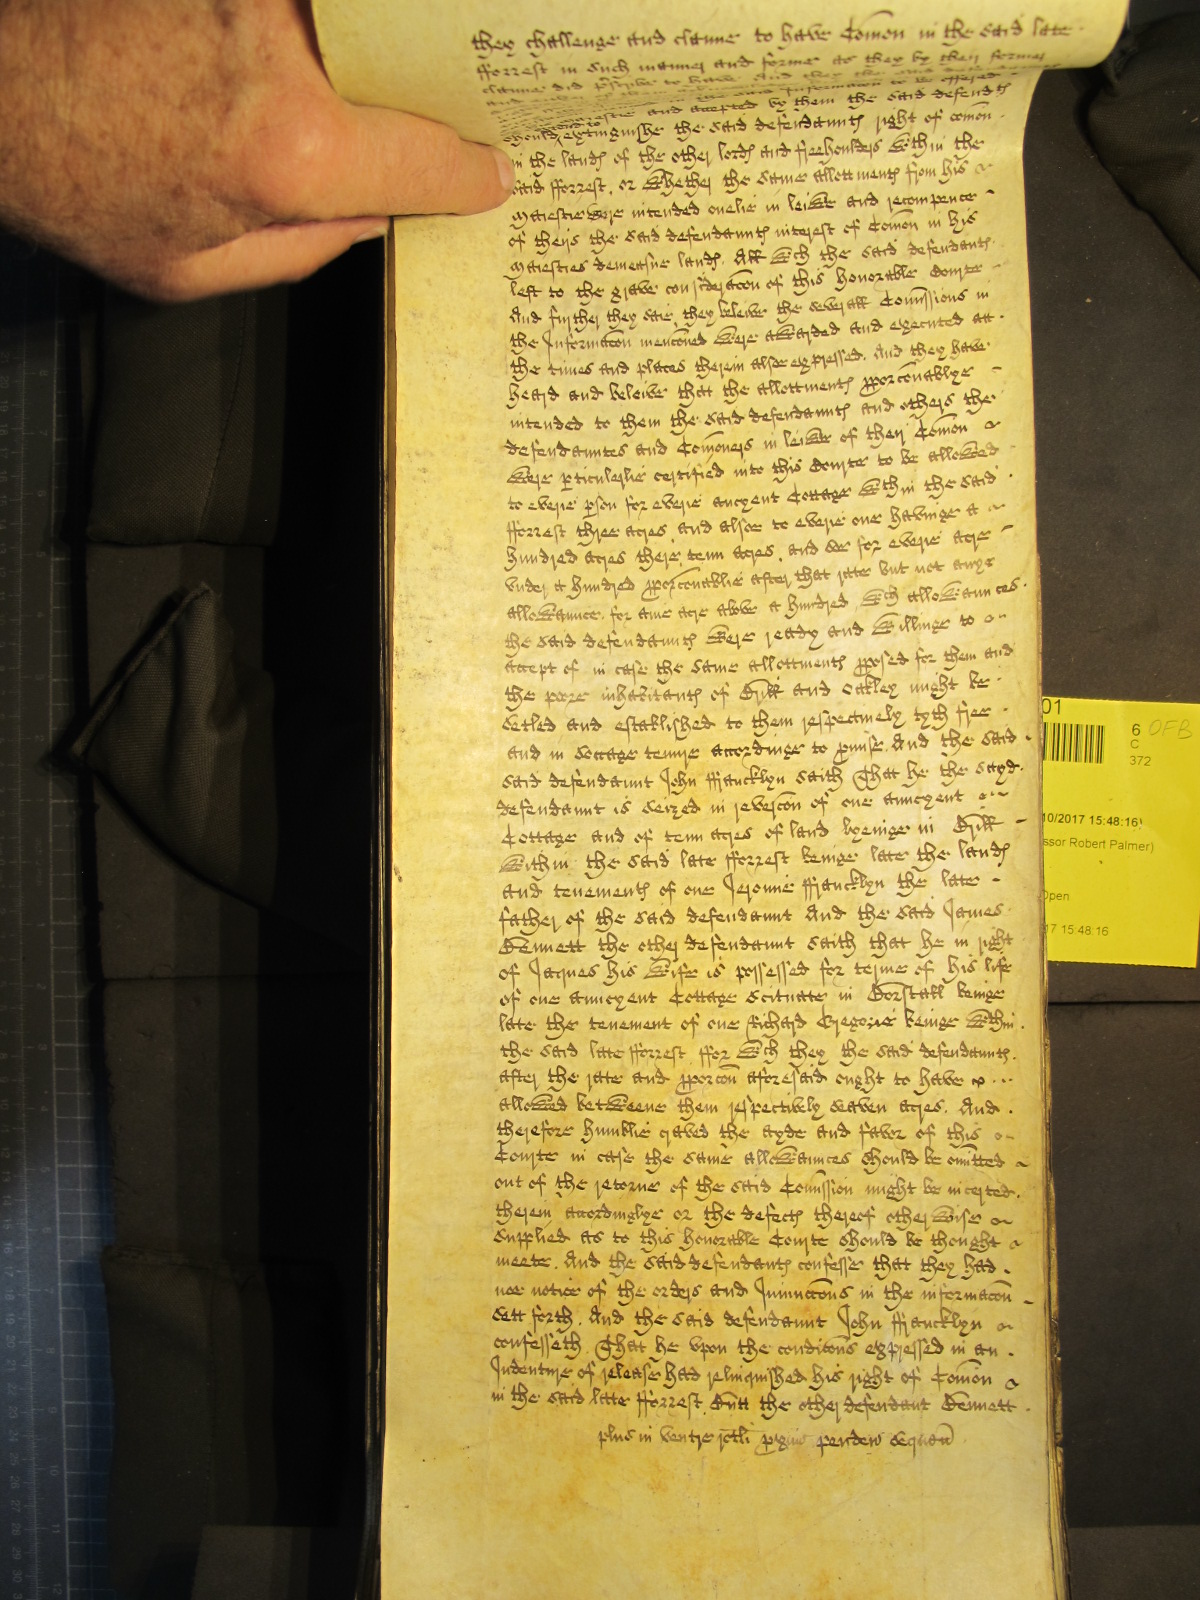 they challenge and clayme to have Com̄on in the said late
fforrest in such manner and forme as they by their former
clayme did p̱scribe to have And they the said
and accepted by them the said defendtꝭ
should extinguishe the said defendauntꝭ right of com̄on
in the landꝭ of the other lordꝭ and freehoulders wthin the
said fforrest, or whether the same allottmentꝭ from his
Maiestie were intended onelie in leiwe and recompence
of theirs the said defendauntꝭ interest of Com̄on in his
Maiesties demeasne landꝭ. All wch the said defendantꝭ
left to the grave consideracōn of this honorable Courte
And further they saie, they beleive the severall Com̄issions in
the Informacōn mencōned were awarded and executed att
the times and places therein alsoe expressed. And they have
heard and beleive that the allottmentꝭ ꝓporcōnablye
intended to them the said defendauntꝭ and others the
defendauntes and Com̄oners in leiwe of their Com̄on
were ꝑticulerlie certified into this Courte to be allowed
to everie ꝑson for everie auncyent Cottage wthin the said
fforrest three acres, and alsoe to everie one havinge a
hundred acres there, tenn acres, and soe for everie acre
under a hundred ꝓporcōnablie after that rate but not anye
allowaunce for anie acre above a hundred, wch allowaunces
the said defendauntꝭ were ready and willinge to
accept of in case the same allottmentꝭ ꝓposed for them and
the pore inhabitantꝭ of Brill and Oakley might be
setled and established to them respectively tyth free
and in soccage tenure accordinge to ꝓmise. And the said
said defendaunt John ffrancklyn saith That he the sayd
defendaunt is seized in revercōn of one auncyent
Cottage and of tenn acres of land lyeinge in Brill
within the said late fforrest beinge late the landꝭ
and tenementꝭ of one Jeromie ffrancklyn the late
father of the said defendaunt And the said James
Bennett the other defendaunt saith that he in right
of Jaques his wife is possessed for terme of his life
of one auncyent Cottage scituate in Borstall beinge
late the tenement of one Richard Gregorie beinge wthin
the said late fforrest. ffor wch they the said defendauntꝭ
after the rate and ꝓporcōn aforesaid ought to have
allowed betweene them respectively seaven acres. And
therefore humblie craved the ayde and favor of this
Courte in case the same allowaunces should be omitted
out of the retorne of the said Com̄ission might be incerted
therein accordinglye or the defectꝭ thereof otherwise
supplied as to this honorable Courte should be thought
meete. And the said defendantꝭ confesse that they had
noe notice of the orders and Iniuncc̄ons in the informacōn
sett forth. And the said defendaunt John ffrancklyn
confesseth That he upon the condicōns expressed in an
Indenture of release had relinquished his right of Com̄on
in the said late fforrest Butt the other defendant Bennett
plus in ventre rotli
01
6 OFB
C
372
10/2017 15:48:16
ssor Robert Palmer)
Open
17 15:48:16